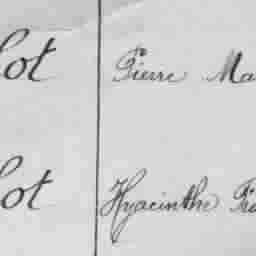 lot Pierre Ma
lot Hyacinthe